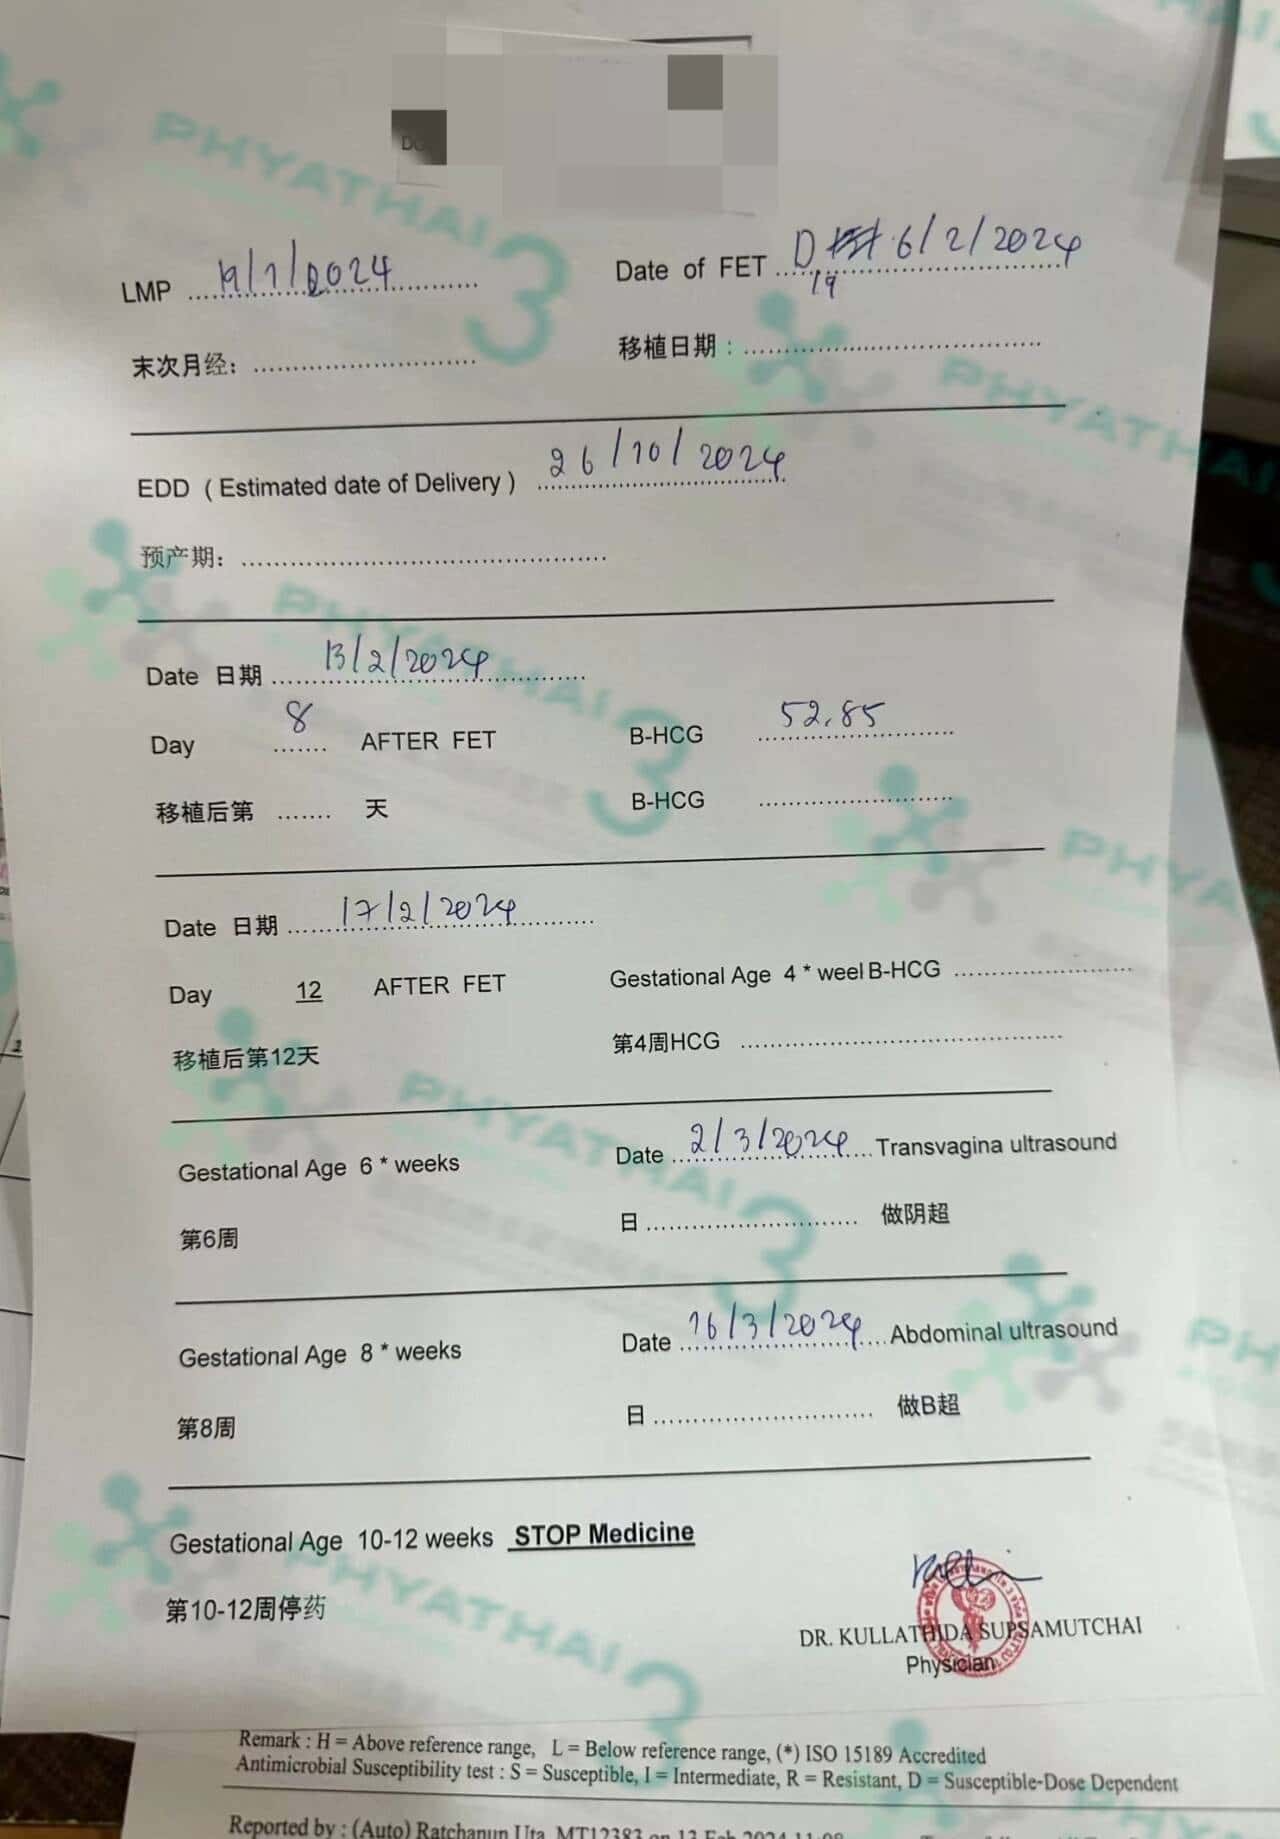 LMP 19/1/2024 Date of FET D 19 6/2/2024
末次月经: 移植日期:
EDD (Estimated date of Delivery) 26/10/2024
预产期:
Date 日期 13/2/2024
Day 8 AFTER FET B-HCG 52.85
移植后第 天 B-HCG
Date 日期 17/2/2024
Day 12 AFTER FET Gestational Age 4 * weel B-HCG
移植后第12天 第4周HCG
Gestational Age 6 * weeks Date 2/3/2024 Transvagina ultrasound
第6周 日 做阴超
Gestational Age 8 * weeks Date 16/3/2024 Abdominal ultrasound
第8周 日 做B超
Gestational Age 10-12 weeks STOP Medicine
第10-12周停药
DR. KULLATHIDA SUPSAMUTCHAI
Physician
PHYATHAI 3
Remark : H = Above reference range, L = Below reference range, (*) ISO 15189 Accredited
Antimicrobial Susceptibility test : S = Susceptible, I = Intermediate, R = Resistant, D = Susceptible-Dose Dependent
Reported by : (Auto) Ratchanun Uta, MT12383 on 13 Feb 2024